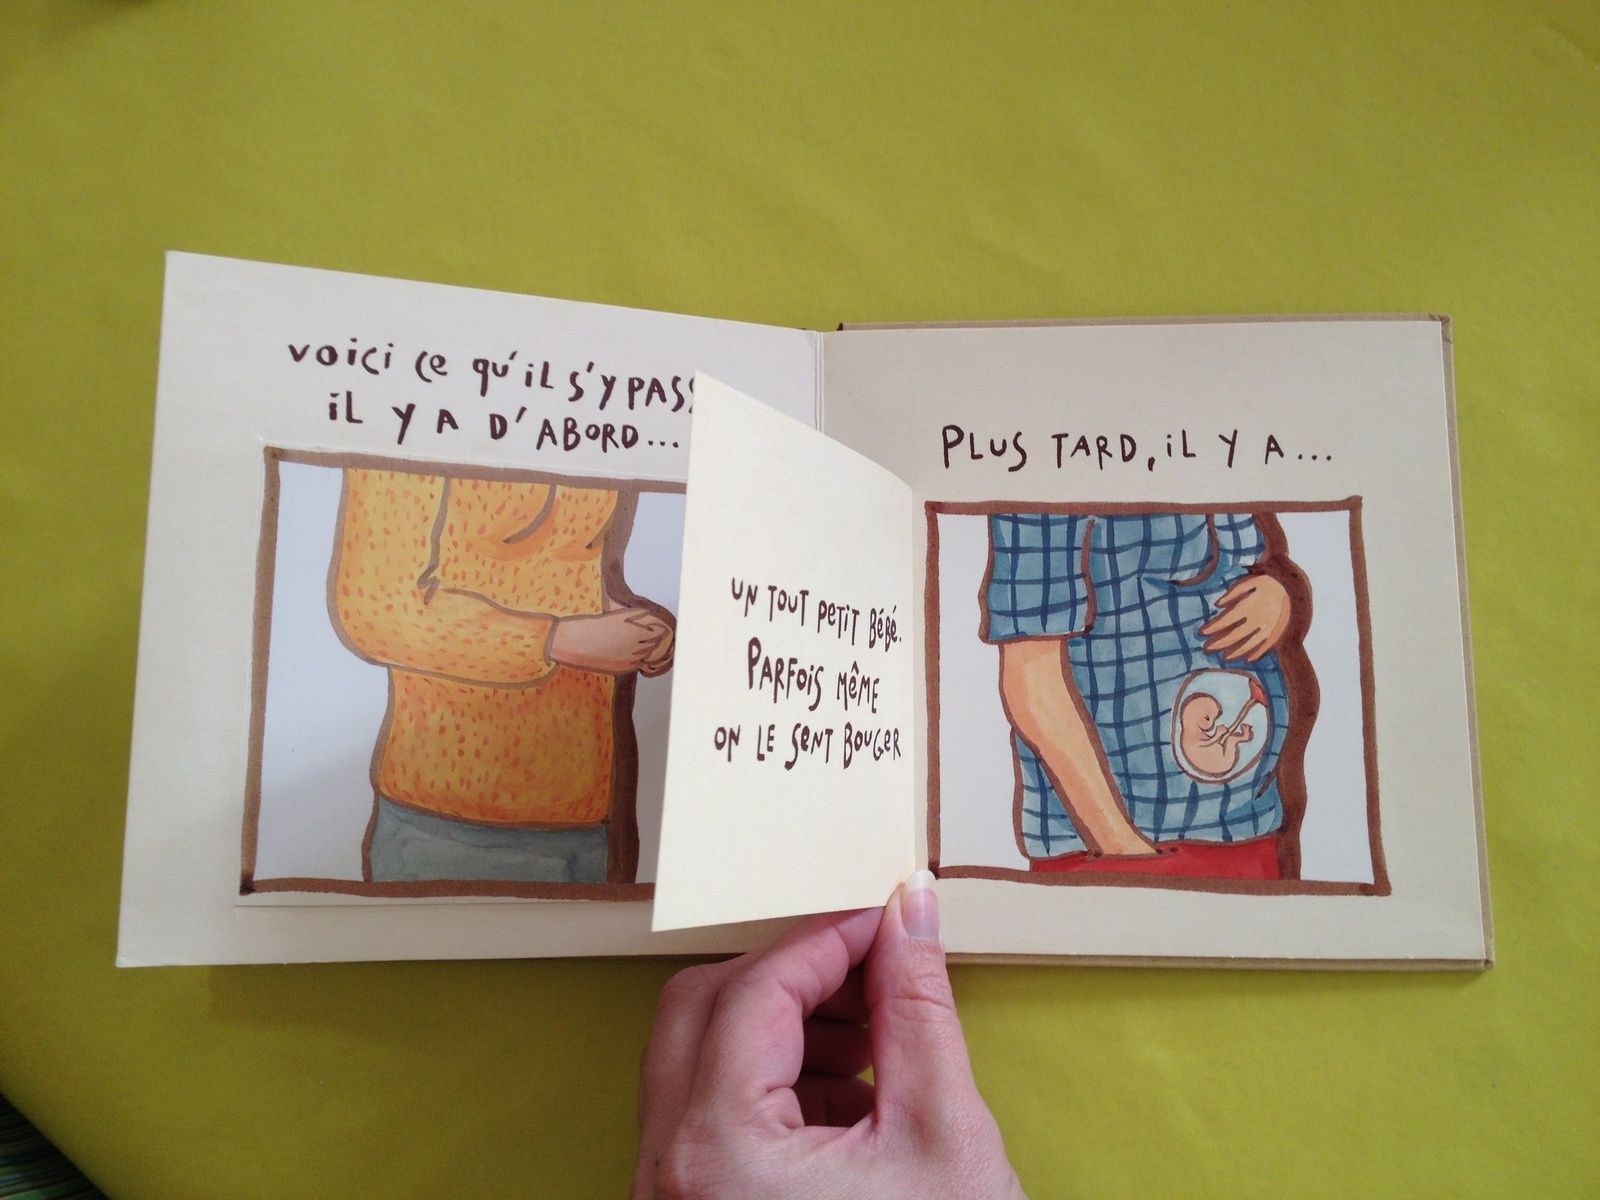 voici ce qu'il s'y pass
il y a d'abord...
un tout petit bébé.
Parfois même
on le sent bouger
Plus tard, il y a...